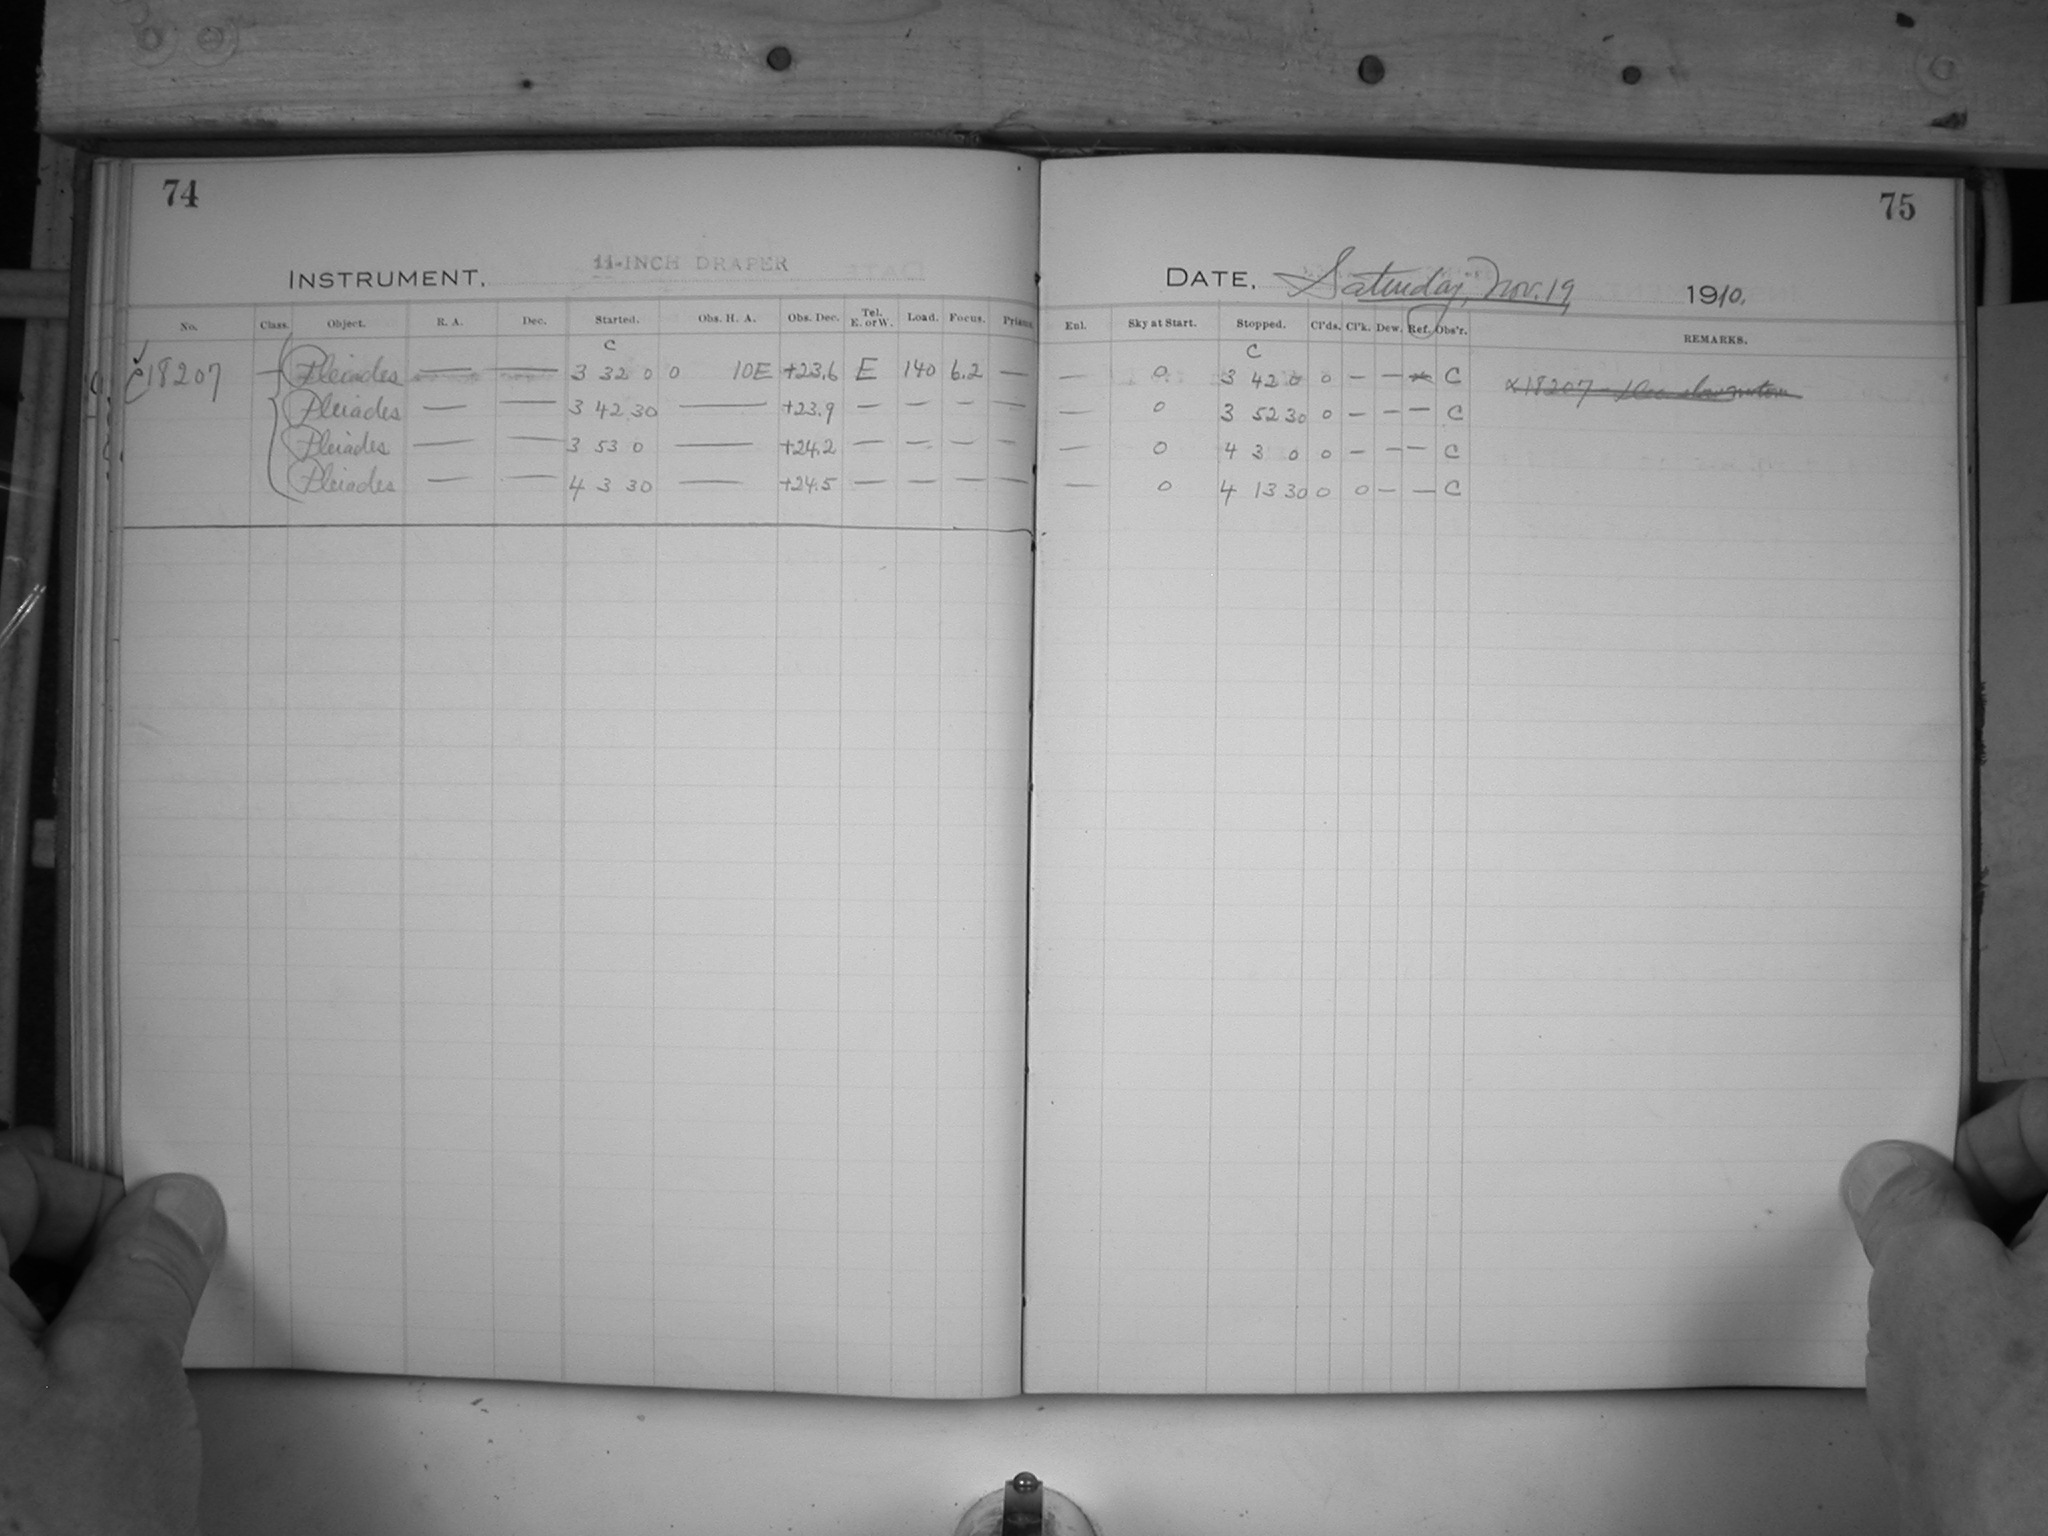 74
INSTRUMENT. 11-INCH DRAPER
No. Class. Object. R. A. Dec. Started. Obs. H. A. Obs. Dec. Tel. E. or W. Load. Focus. Prisms.
C
C18207 Pleiades — — 3 32 0 0 10E +23.6 E 140 6.2 —
Pleiades — — 3 42 30 — +23.9 — — — —
Pleiades — — 3 53 0 — +24.2 — — — —
Pleiades — — 4 3 30 — +24.5 — — — —
75
DATE. Saturday, Nov. 19, 1910.
Enl. Sky at Start. Stopped. Cl'ds. Cl'k. Dew. Ref. Obs'r. REMARKS.
C
— 0 3 42 0 0 — — C 18207
— 0 3 52 30 0 — — — C
— 0 4 3 0 0 — — — C
— 0 4 13 30 0 0 — — C